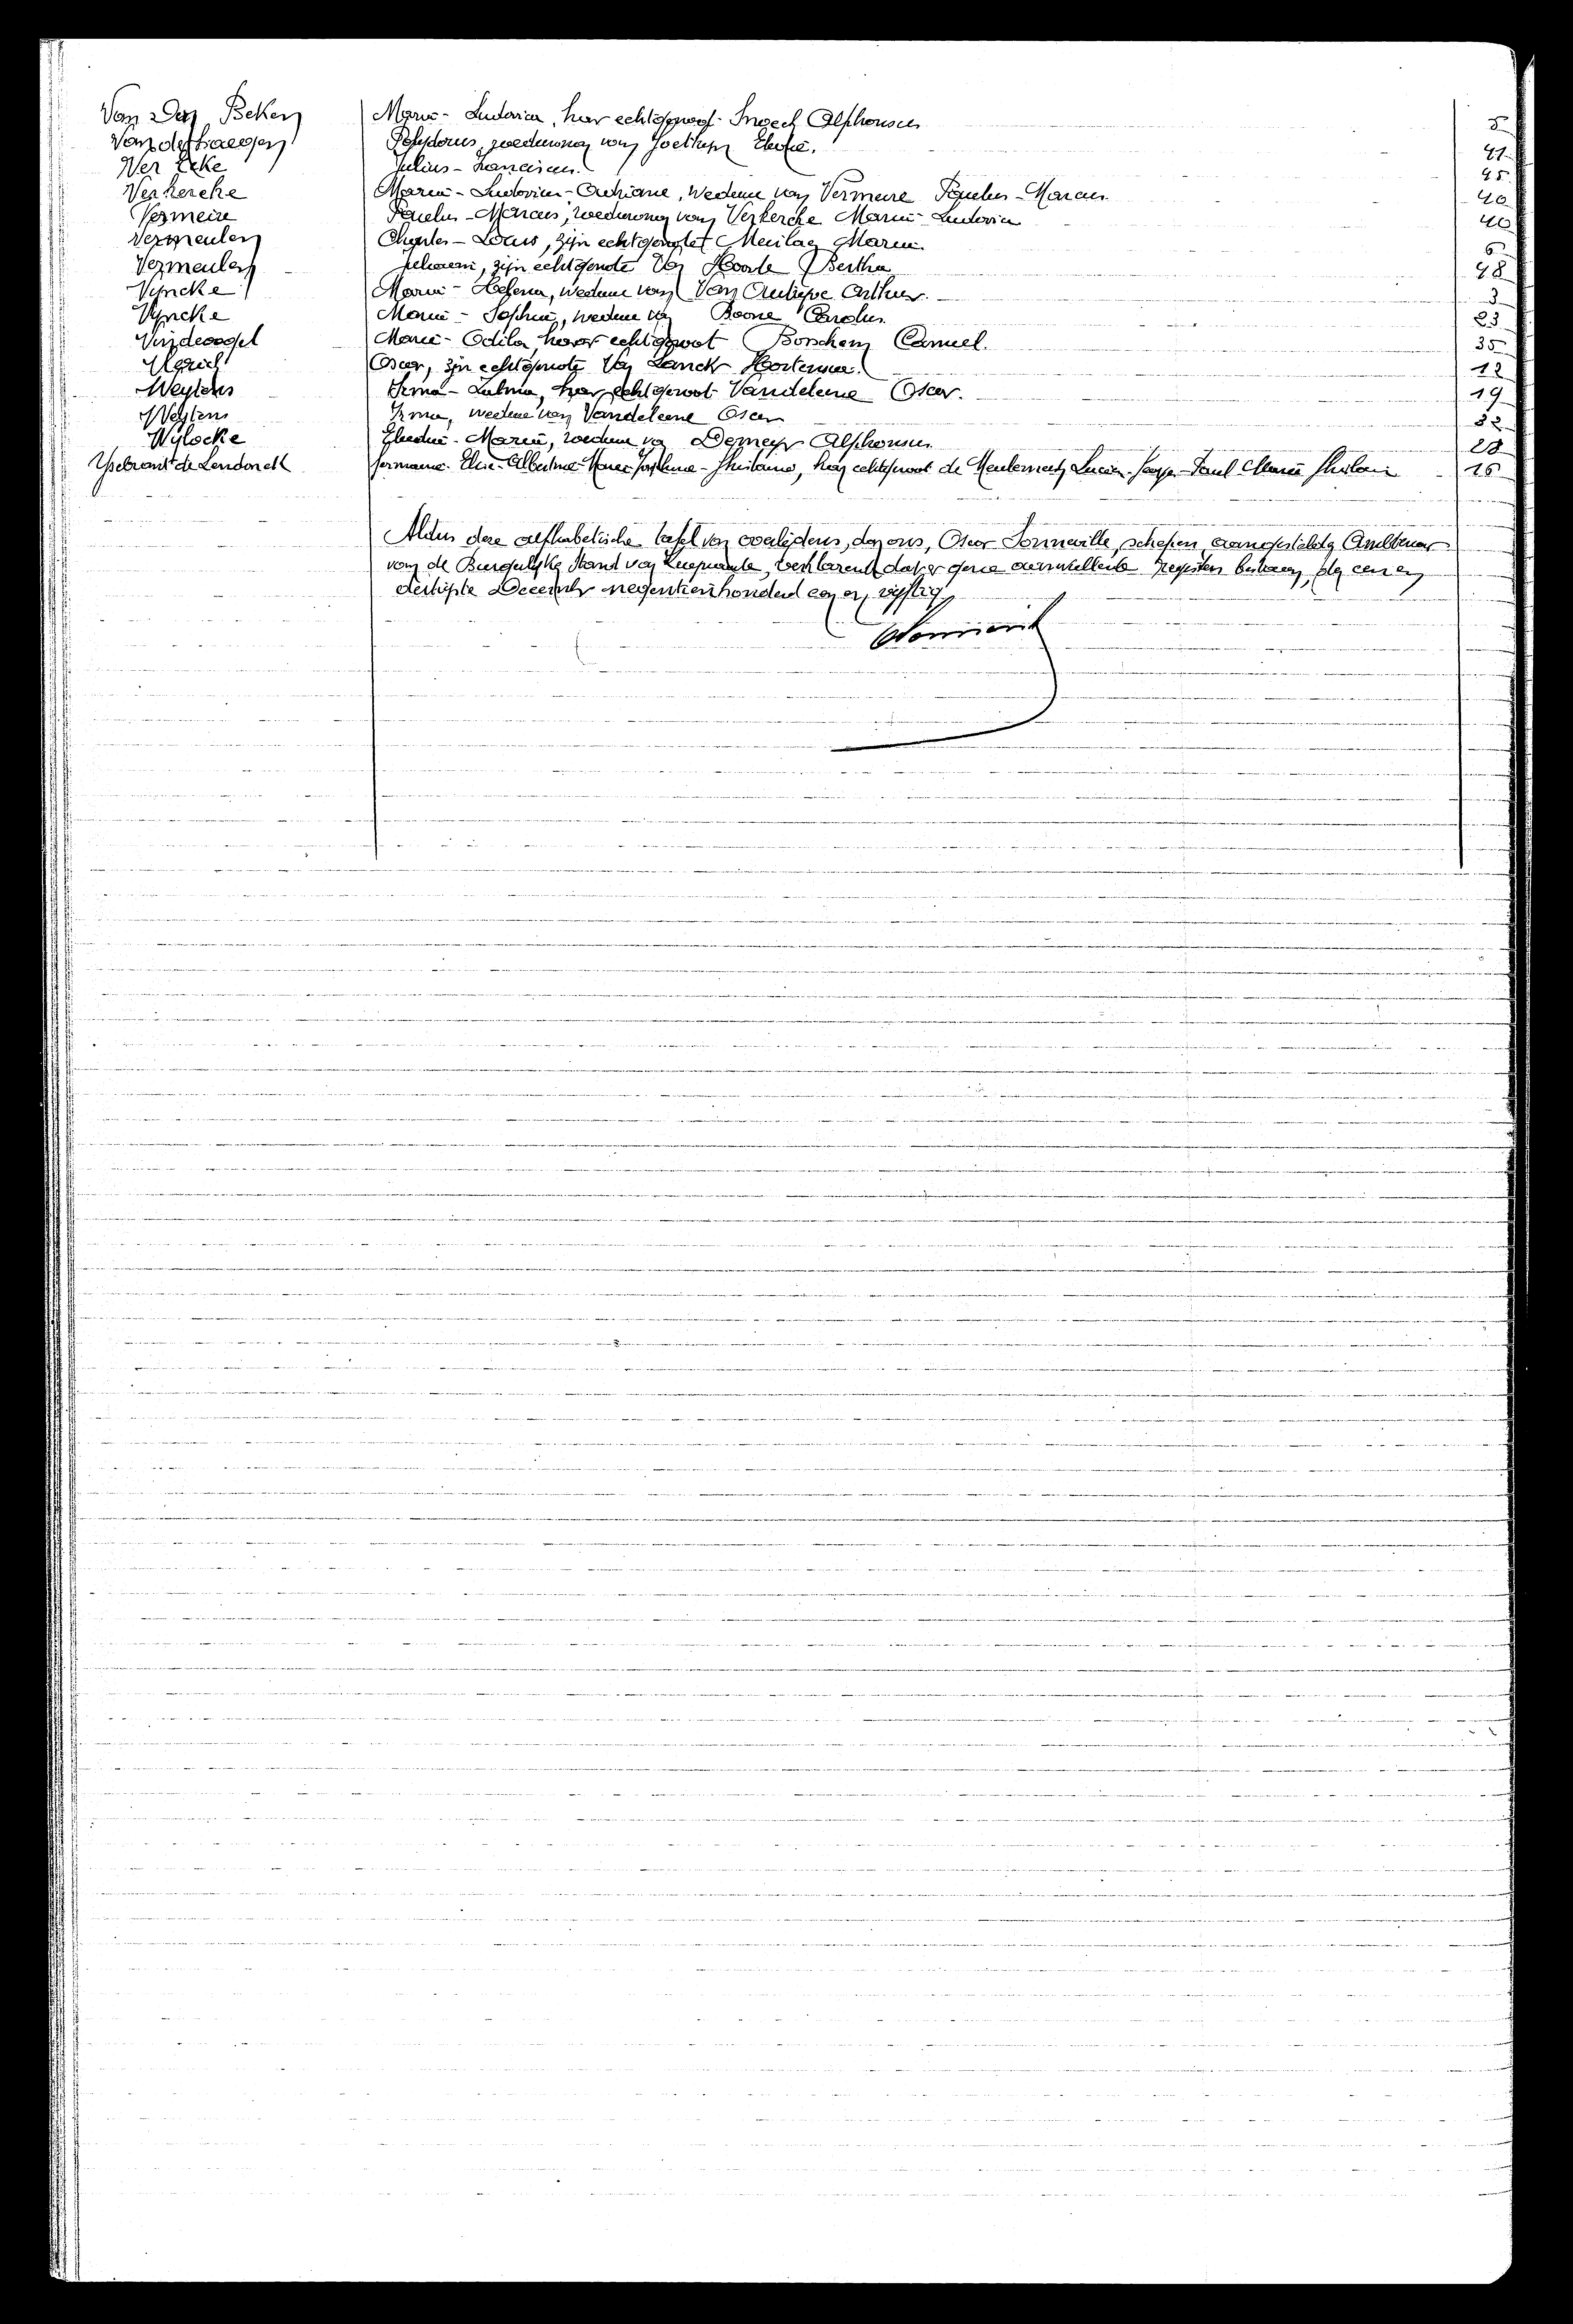 Van Den Beken Maria-Ludovica, haar echtgenoot Snoeck Alphonsus 5
Vanderhaegen Polydorus, weduwnaar van Goethyn Elodie. 41
Ver Eeke Julius-Franciscus. 45
Verkerche Maria-Ludovica-Adriane, Weduwe van Vermeire Paulus-Marcus 40
Vermeire Paulus-Marcus, weduwnaar van Verkerche Maria-Ludovica 40
Vermeulen Charles-Louis, zijn echtgenote Marie 6
Vermeulen zijn echtgenote Van Hoorde Bertha 48
Vyncke Maria-Helena, weduwe van Van Autryve Arthur. 3
Vyncke Marie-Sophie, weduwe van Boone Carolus. 23
Vindevogel Marie-Odila, haar echtgenoot Camiel. 35
Oscar, zijn echtgenote Van Lanck 12
Weytens Irma-Zulma, haar echtgenoot Vandeleene Oscar. 19
Weytens Irma, weduwe van Vandeleene Oscar 32
Wylocke Marie, weduwe van Demeyer Alphonsus 28
Ysebrant de Lendonck Germaine-Elise-Albertine-Marie-Josephine-Ghislaine, haar echtgenoot de Meulemeester Lucien-Joseph-Paul-Marie Ghislain 16
Aldus deze alfhabetische tafel van overlijdens, door ons, Oscar Sonneville, schepen, aangestelde Ambtenaar
van de Burgelijke Stand van verklarende dat er geene registers bestaan, den een en
dertigste December negentienhonderd een en vijftig